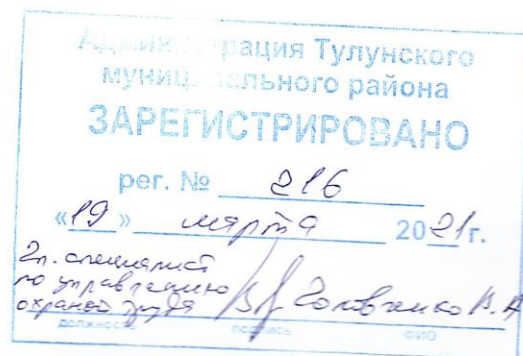 Администрация Тулунского
муниципального района
ЗАРЕГИСТРИРОВАНО
рег. № 216
«19» марта 2021г.
Гл. специалист
по управлению
охраной труда Головченко В. А
должность подпись ФИО